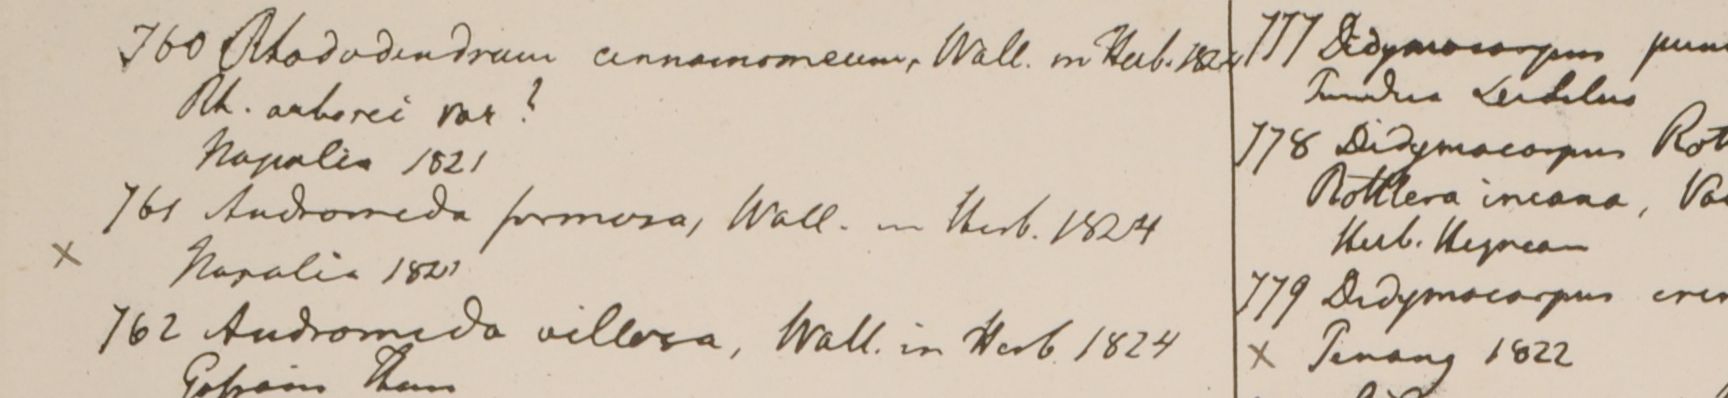 760 Rhododendrum cinnamomeum, Wall. in Herb. 1824
Rh. arborei var?
Napalia 1821
761 Andromeda formosa, Wall. in Herb. 1824
x Napalia 1821
762 Andromeda villosa, Wall. in Herb 1824
Gosain Than
777 Didymocarpus
Tundua
778 Didymocarpus Rott
Rottlera incana, Va
Herb. Heynean
779 Didymocarpus
x Penang 1822